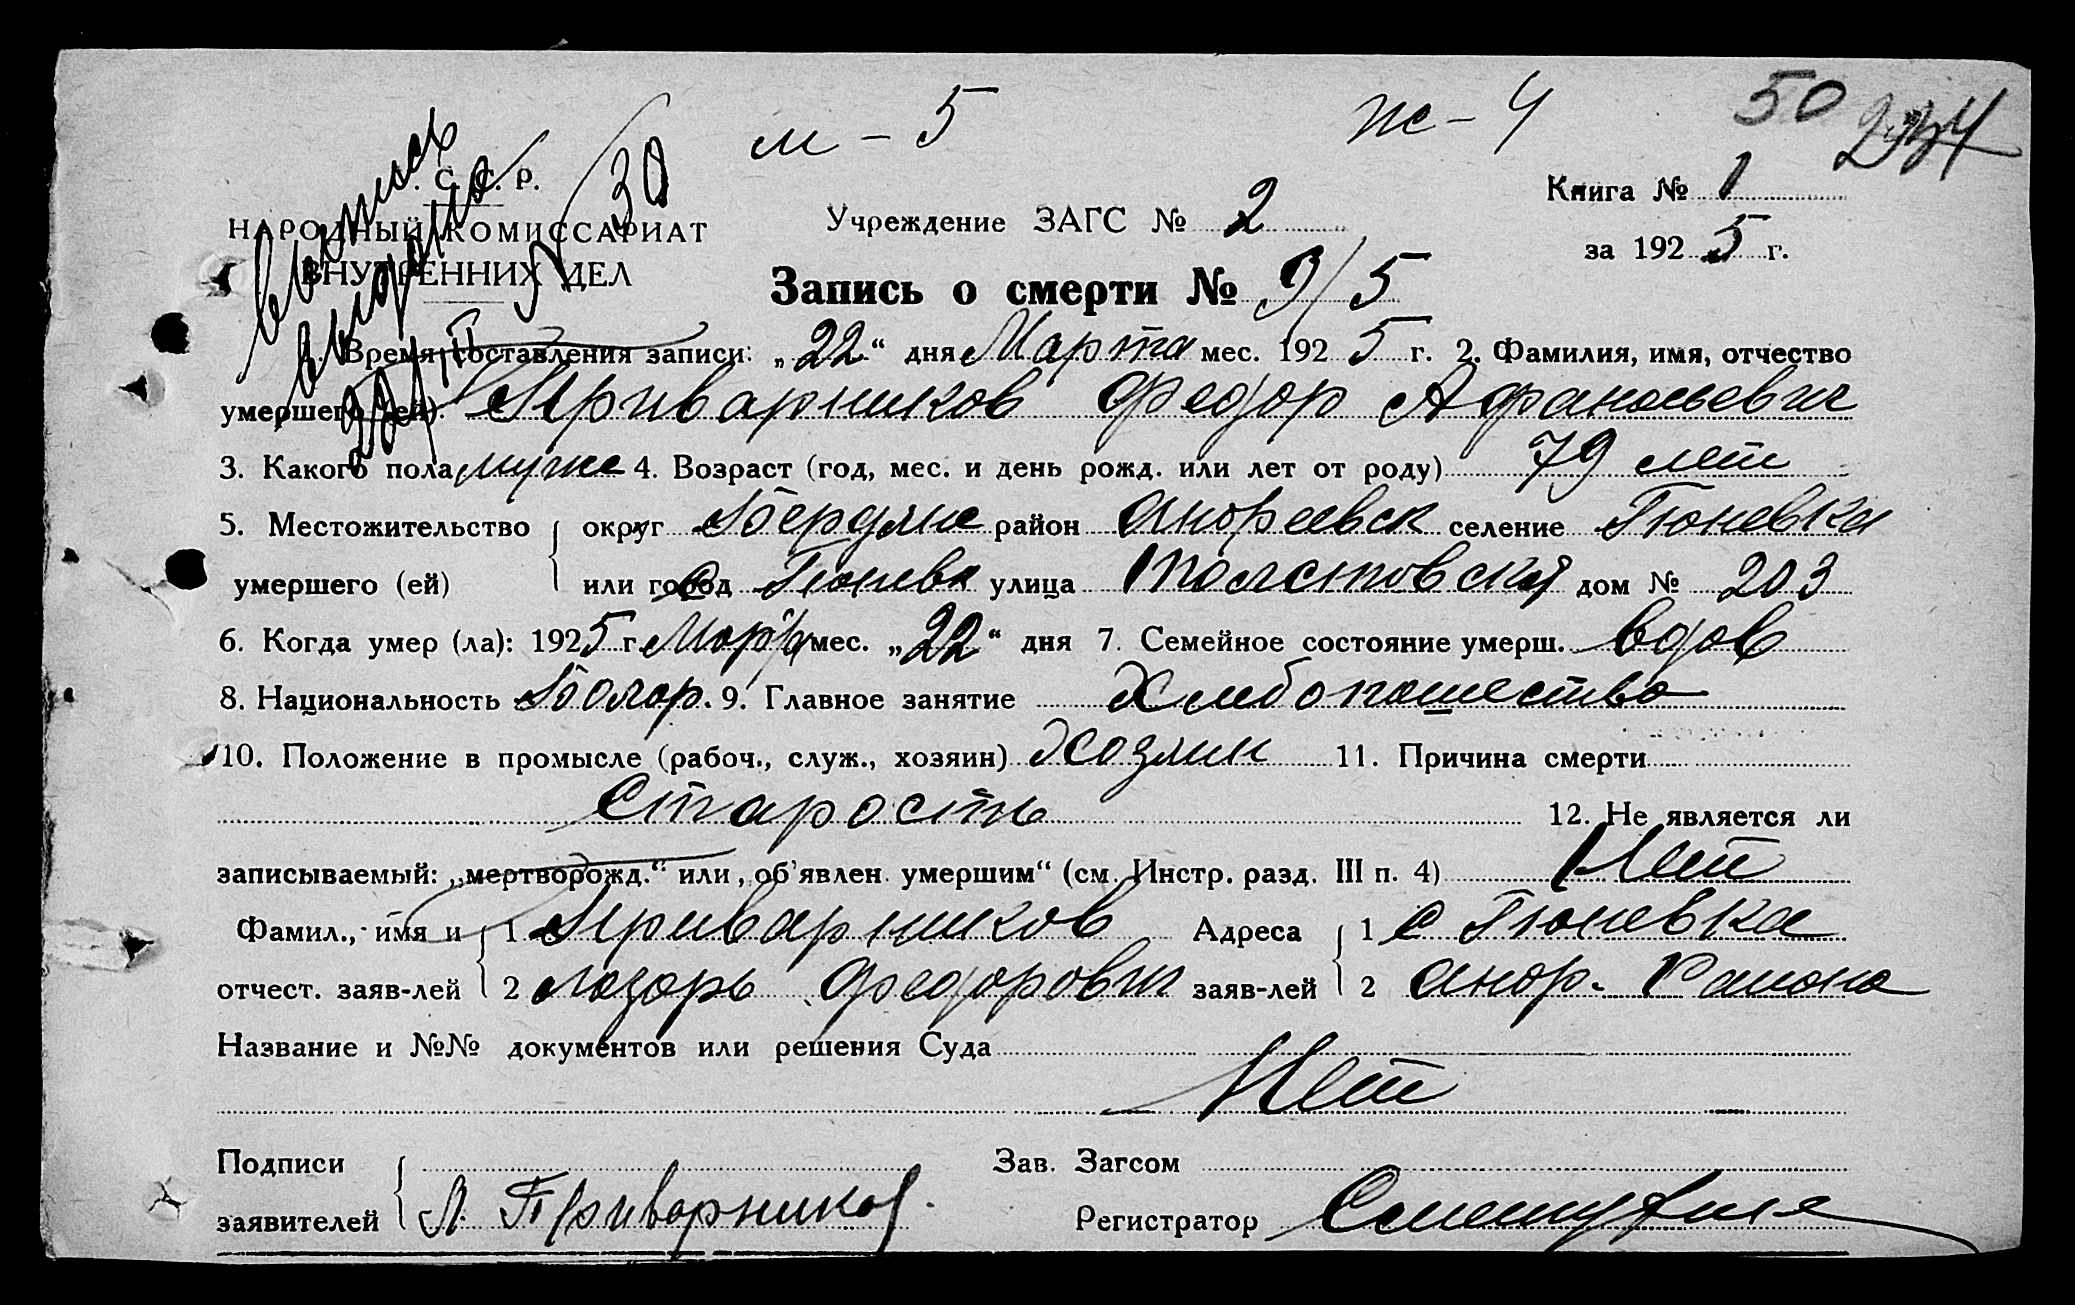 м – 5
ж – 4
50
234
Выпись
выдана
30
. С. С. Р.
НАРОДНЫЙ КОМИССАРИАТ
ВНУТРЕННИХ ДЕЛ
Учреждение ЗАГС № 2
Книга № 1
за 1925 г.
Запись о смерти № 9/5
1. Время составления записи: „22“ дня Марта мес. 1925 г. 2. Фамилия, имя, отчество
умершего (ей): Приварников Федор Афанасьевич
3. Какого пола мужс 4. Возраст (год, мес. и день рожд. или лет от роду) 79 лет
5. Местожительство округ Бердянс район Андреевск селение Гюневка
умершего (ей) или город с Гюневка улица Толстовская дом № 203
6. Когда умер (ла): 1925 г. Марта мес. „22“ дня 7. Семейное состояние умерш. вдов
8. Национальность Болгар. 9. Главное занятие Хлебопашество
10. Положение в промысле (рабоч., служ., хозяин) Хозяин 11. Причина смерти
Старость 12. Не является ли
записываемый: „мертворожд.“ или „об'явлен умершим“ (см. Инстр. разд. III п. 4) Нет
Фамил., имя и 1 Приварников Адреса 1 с Гюневка
отчест. заяв-лей 2 Лазарь Федорович заяв-лей 2 Андр. Района
Название и №№ документов или решения Суда
Нет
Подписи Зав. Загсом
заявителей Л. Приварников Регистратор